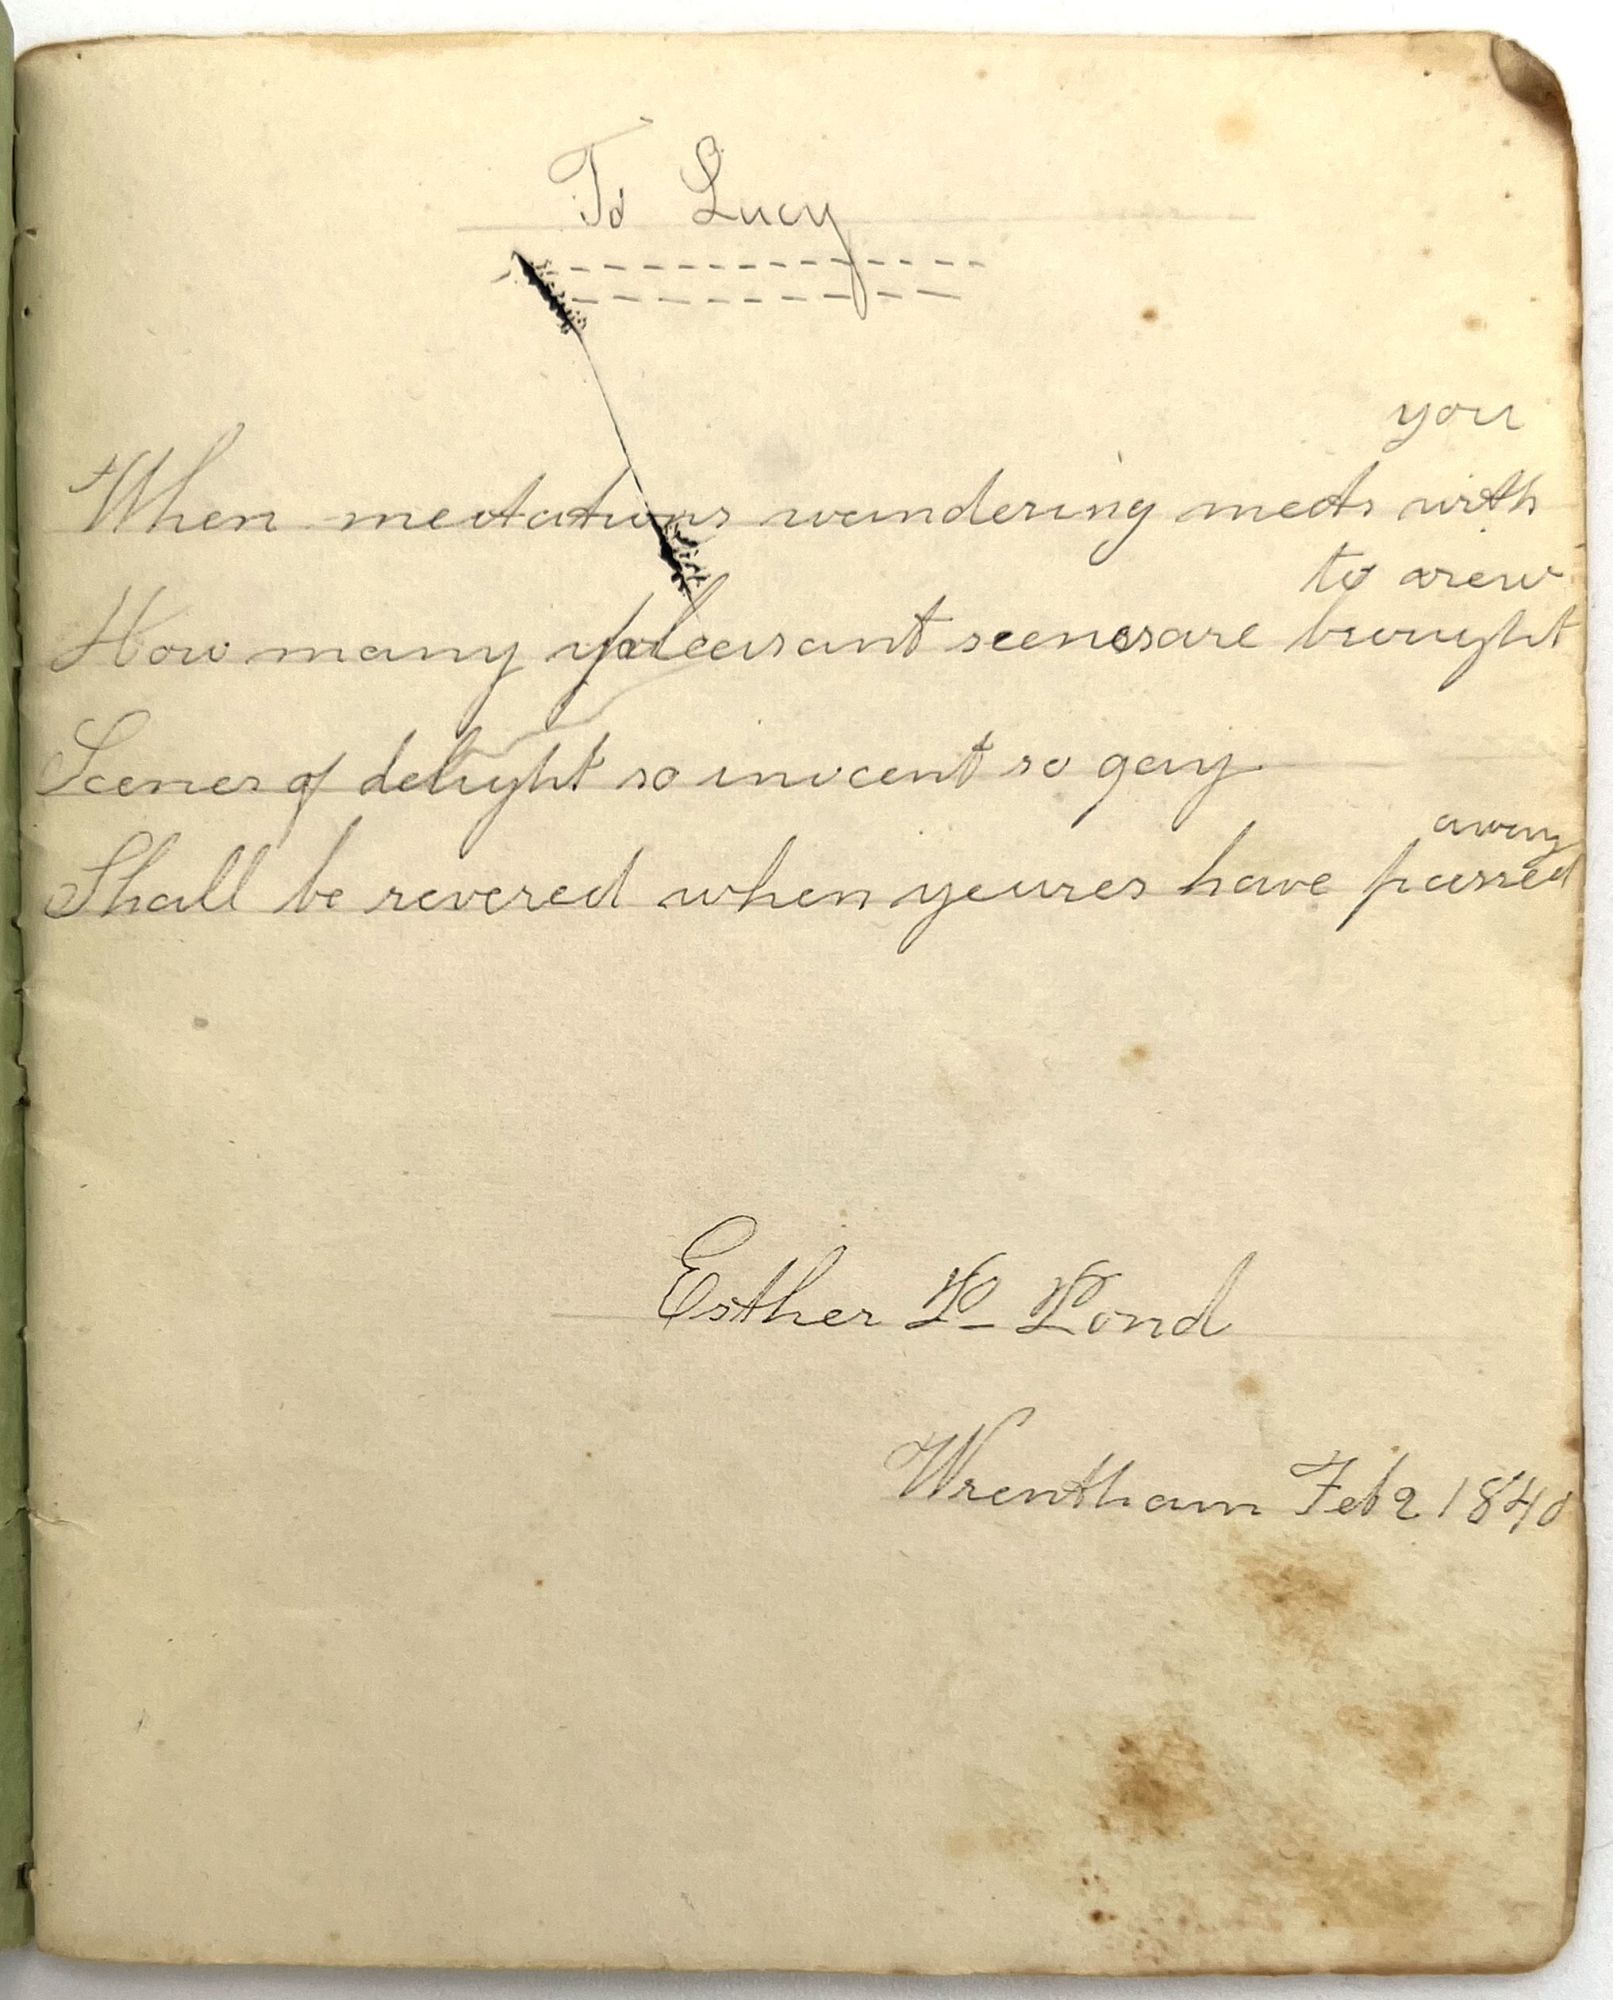 To Lucy
you
When meditations wandering meets with
to view
How many pleasant scenes are brought
Scenes of delight so inocent so gay
away
Shall be revered when yeares have passed
Esther
Wrentham Feb 2 1840